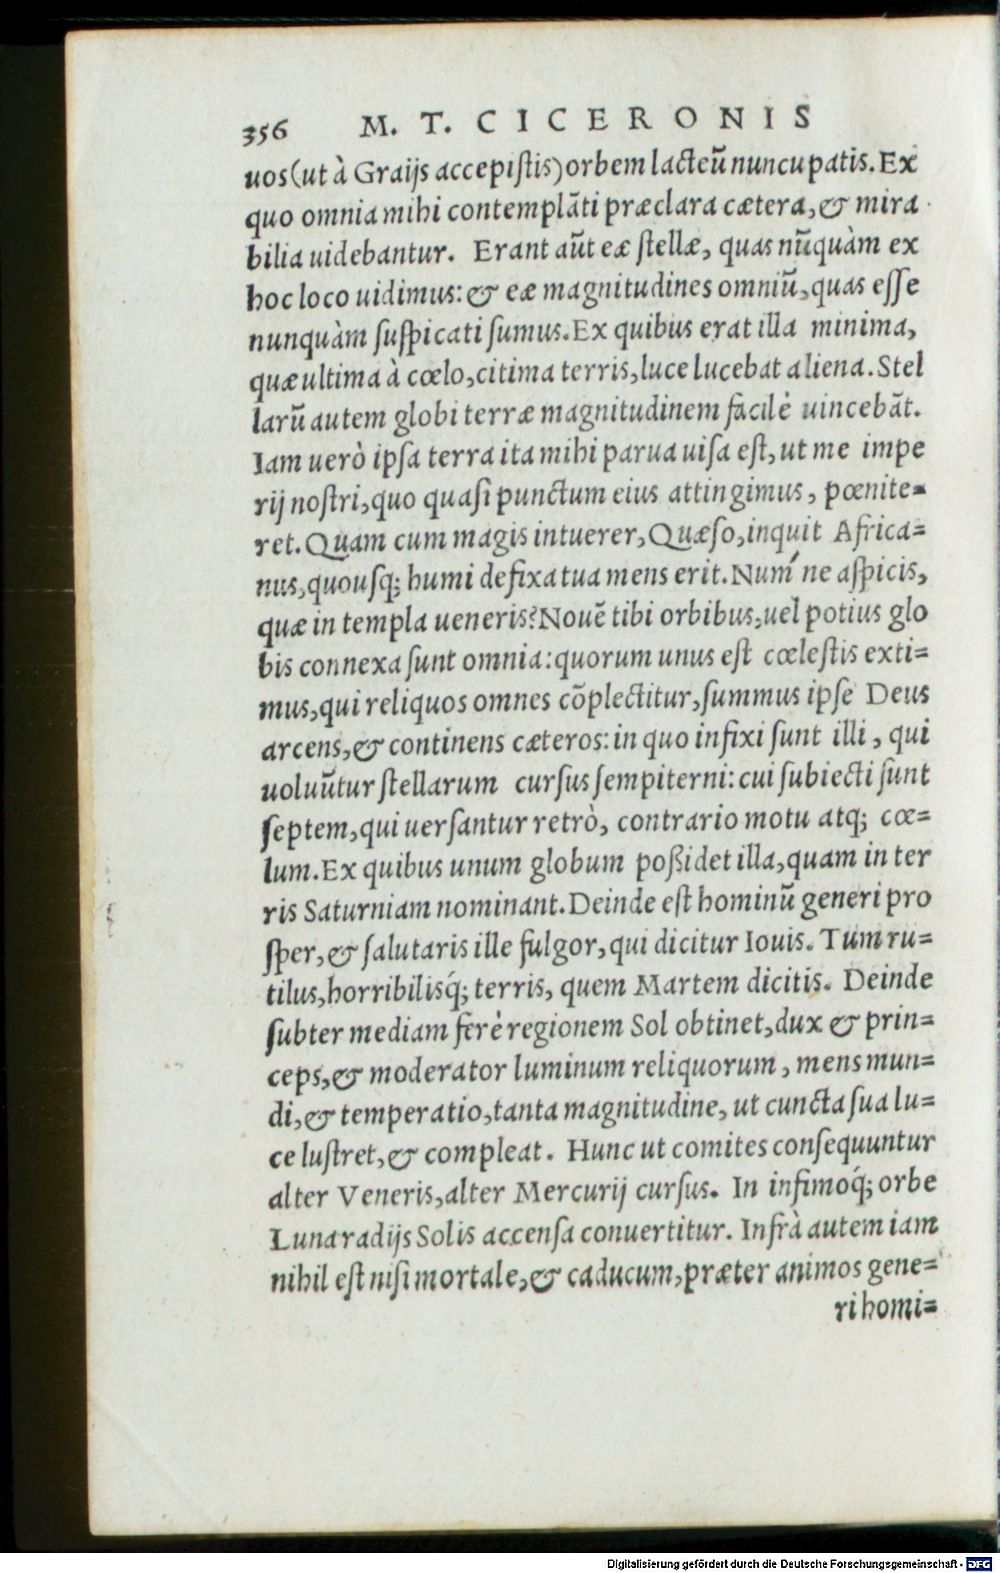 356 M. T. CICERONIS
uos (ut à Graijs accepistis) orbem lacteū nuncupatis. Ex
quo omnia mihi contemplāti præclara cætera, & mira
bilia uidebantur. Erant aūt eæ stellæ, quas nūquàm ex
hoc loco uidimus: & eæ magnitudines omniū, quas esse
nunquàm suspicati sumus. Ex quibus erat illa minima,
quæ ultima à cœlo, citima terris, luce lucebat aliena. Stel
larū autem globi terræ magnitudinem facilè uincebāt.
Iam uerò ipsa terra ita mihi parua uisa est, ut me impe
rij nostri, quo quasi punctum eius attingimus, pœnite=
ret. Quam cum magis intuerer, Quæso, inquit Africa=
nus, quousq; humi defixa tua mens erit. Nuḿ ne aspicis,
quæ in templa ueneris? Nouē tibi orbibus, uel potius glo
bis connexa sunt omnia: quorum unus est cœlestis exti=
mus, qui reliquos omnes cōplectitur, summus ipse Deus
arcens, & continens cæteros: in quo infixi sunt illi, qui
uoluūtur stellarum cursus sempiterni: cui subiecti sunt
septem, qui uersantur retrò, contrario motu atq; cœ=
lum. Ex quibus unum globum poßidet illa, quam in ter
ris Saturniam nominant. Deinde est hominū generi pro
sper, & salutaris ille fulgor, qui dicitur Iouis. Tum ru=
tilus, horribilisq́; terris, quem Martem dicitis. Deinde
subter mediam ferè regionem Sol obtinet, dux & prin=
ceps, & moderator luminum reliquorum, mens mun=
di, & temperatio, tanta magnitudine, ut cuncta sua lu=
ce lustret, & compleat. Hunc ut comites consequuntur
alter Veneris, alter Mercurij cursus. In infimoq́; orbe
Luna radijs Solis accensa conuertitur. Infrà autem iam
nihil est nisi mortale, & caducum, præter animos gene=
ri homi=
Digitalisierung gefördert durch die Deutsche Forschungsgemeinschaft - DFG